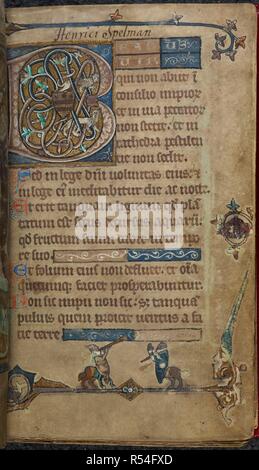 Henrici Spelman
B
A US
VIR
qui non abiit ī
consilio impior
et in uia peccator
non stetit. et in
cathedra pestilen
tie non sedit.
Sed in lege dn̄i uoluntas eius. et
in lege eī meditabitur die ac nocte.
Et erit tanquam lignum
tatum est
qd̓ fructum suum dabit in tempo
re suo.
Et folium eius non defluet. et oīa
quecunq; faciet prosperabuntur.
Non sic impii non sic. set tanquā
puluis quem proicit uentus a fa
cie terre
alamy
R54FXD